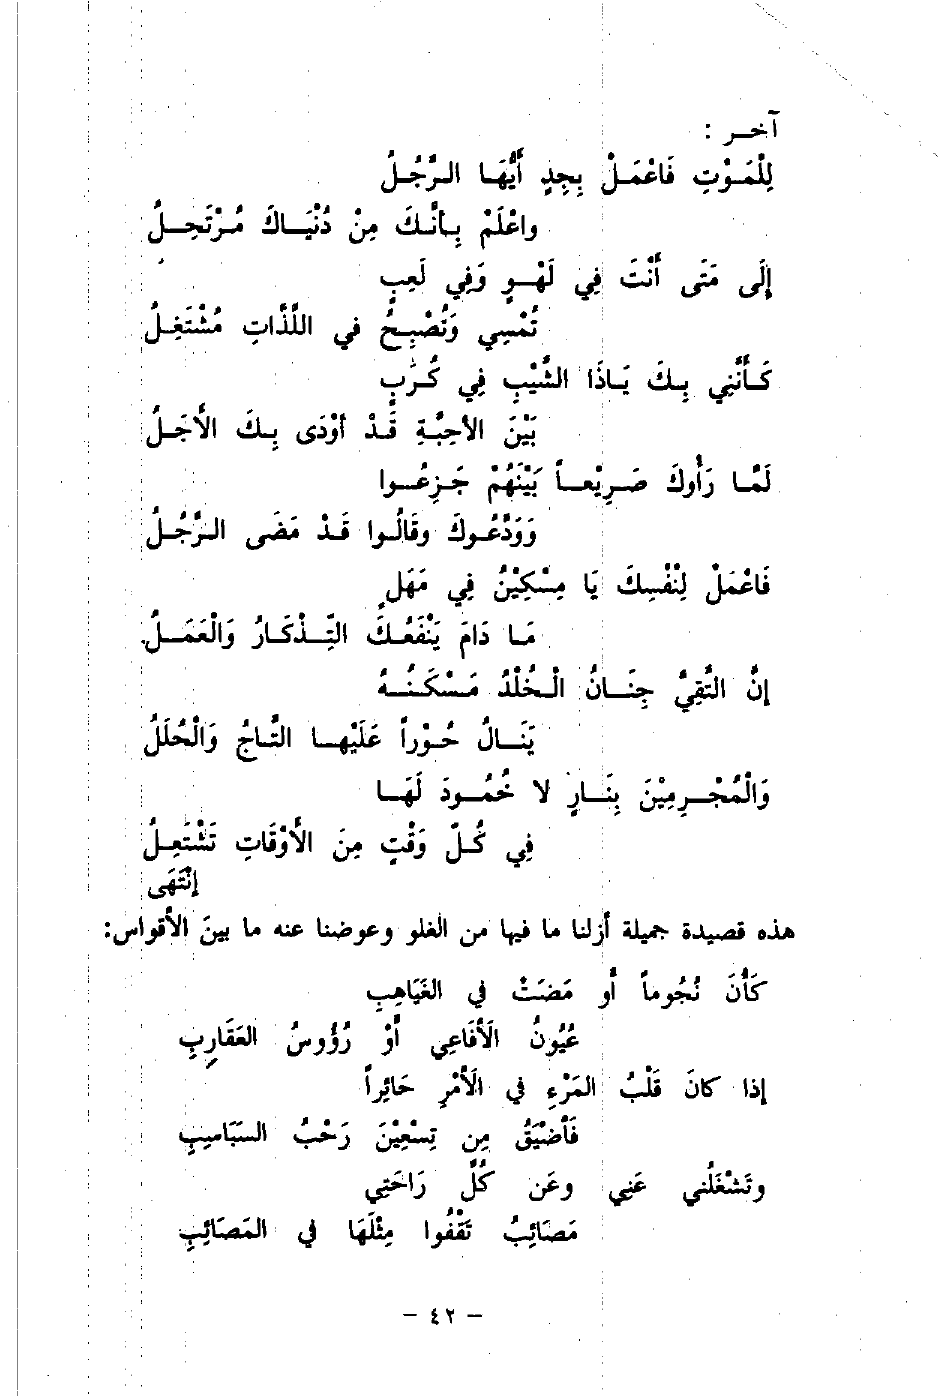 آخـر :
لِلْمَـوْتِ فَاعْمَـلْ بِجِدٍ أَيُّهَـا الـرَّجُـلُ
واعْلَمْ بِـأنَّـكَ مِنْ دُنْيَـاكَ مُـرْتَحِـلُ
إِلَى مَتَى أَنْتَ فِي لَهْـوٍ وَفِي لَعِبٍ
تُمْسِي وَتُصْبِـحُ في اللَّذَاتِ مُشْتَغِـلُ
كَـأَنَّنِي بِـكَ يَـاذَا الشَّيْبِ فِي كُـرَبٍ
بَيْنَ الأحِبَّـةِ قَـدْ أوْدَى بِـكَ الأَجَـلُ
لَمَّـا رَأَوكَ صَـرِيْعـاً بَيْنَهُمْ جَـزِعُـوا
وَوَدَّعُـوكَ وقَالُـوا قَـدْ مَضَى الـرَّجُـلُ
فَاعْمَلْ لِنْفْسِكَ يَا مِسْكِيْنُ فِي مَهَلٍ
مَـا دَامَ يَنْفَعُـكَ التِّـذْكَـارُ وَالْعَمَـلُ
إنَّ التَّقِيَّ جِنَـانُ الْـخُلْدُ مَـسْكَـنُـهُ
يَنَـالُ حُـوْراً عَلَيْهـا التَّـاجُ وَالْحُلَلُ
وَالْمُجْـرِمِيْنَ بِنَـارٍ لا خُمُـودَ لَهَـا
فِي كُـلّ وَقْتٍ مِنَ الأَوْقَاتِ تَشْتَعِـلُ
إِنْتَهَى
هذه قصيدة جميلة أزلنا ما فيها من الغلو وعوضنا عنه ما بينَ الأقواس:
كَأَنَ نُجُوماً أَو مَضَتْ في الغَيَاهِبِ
عُيُونُ الأَفَاعِي أَوْ رُؤُوسُ العَقَارِبِ
إذا كانَ قَلْبُ المَرْءِ في الَأمْرِ حَائِراً
فَأَضْيَقُ مِن تِسْعِيْنَ رَحْبُ السَبَاسِبِ
وتَشْغَلُني عَنِي وعَن كُلَّ رَاحَتِي
مَصَائِبُ تَقْفُوا مِثْلَهَا في المَصَائِبِ
– ٤٢ –